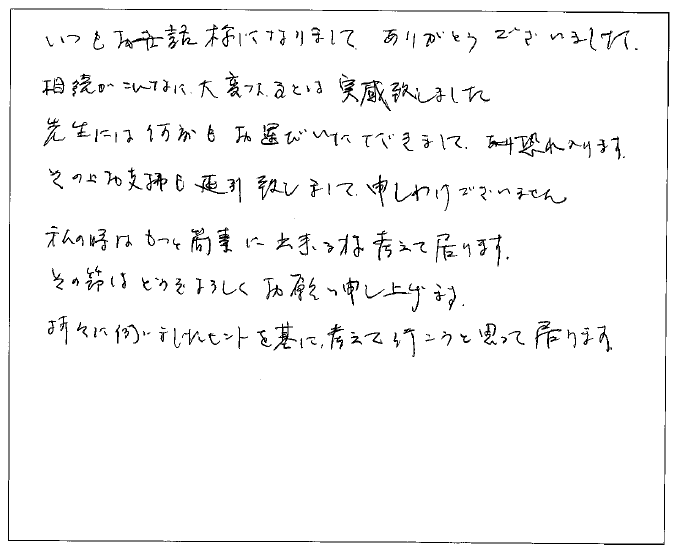 いつもお世話様になりまして、ありがとうございました。
相続がこんなに、大変な、るとは実感致しました
先生には何度もお運びいただきまして、恐れ入ります。
その上お支払も延引致しまして、申しわけございません
私の時はもっと簡素に出来る様考えて居ります。
その節はどうぞよろしくお願い申し上げます。
折々に伺いましたヒントを基に、考えて行こうと思って居ります